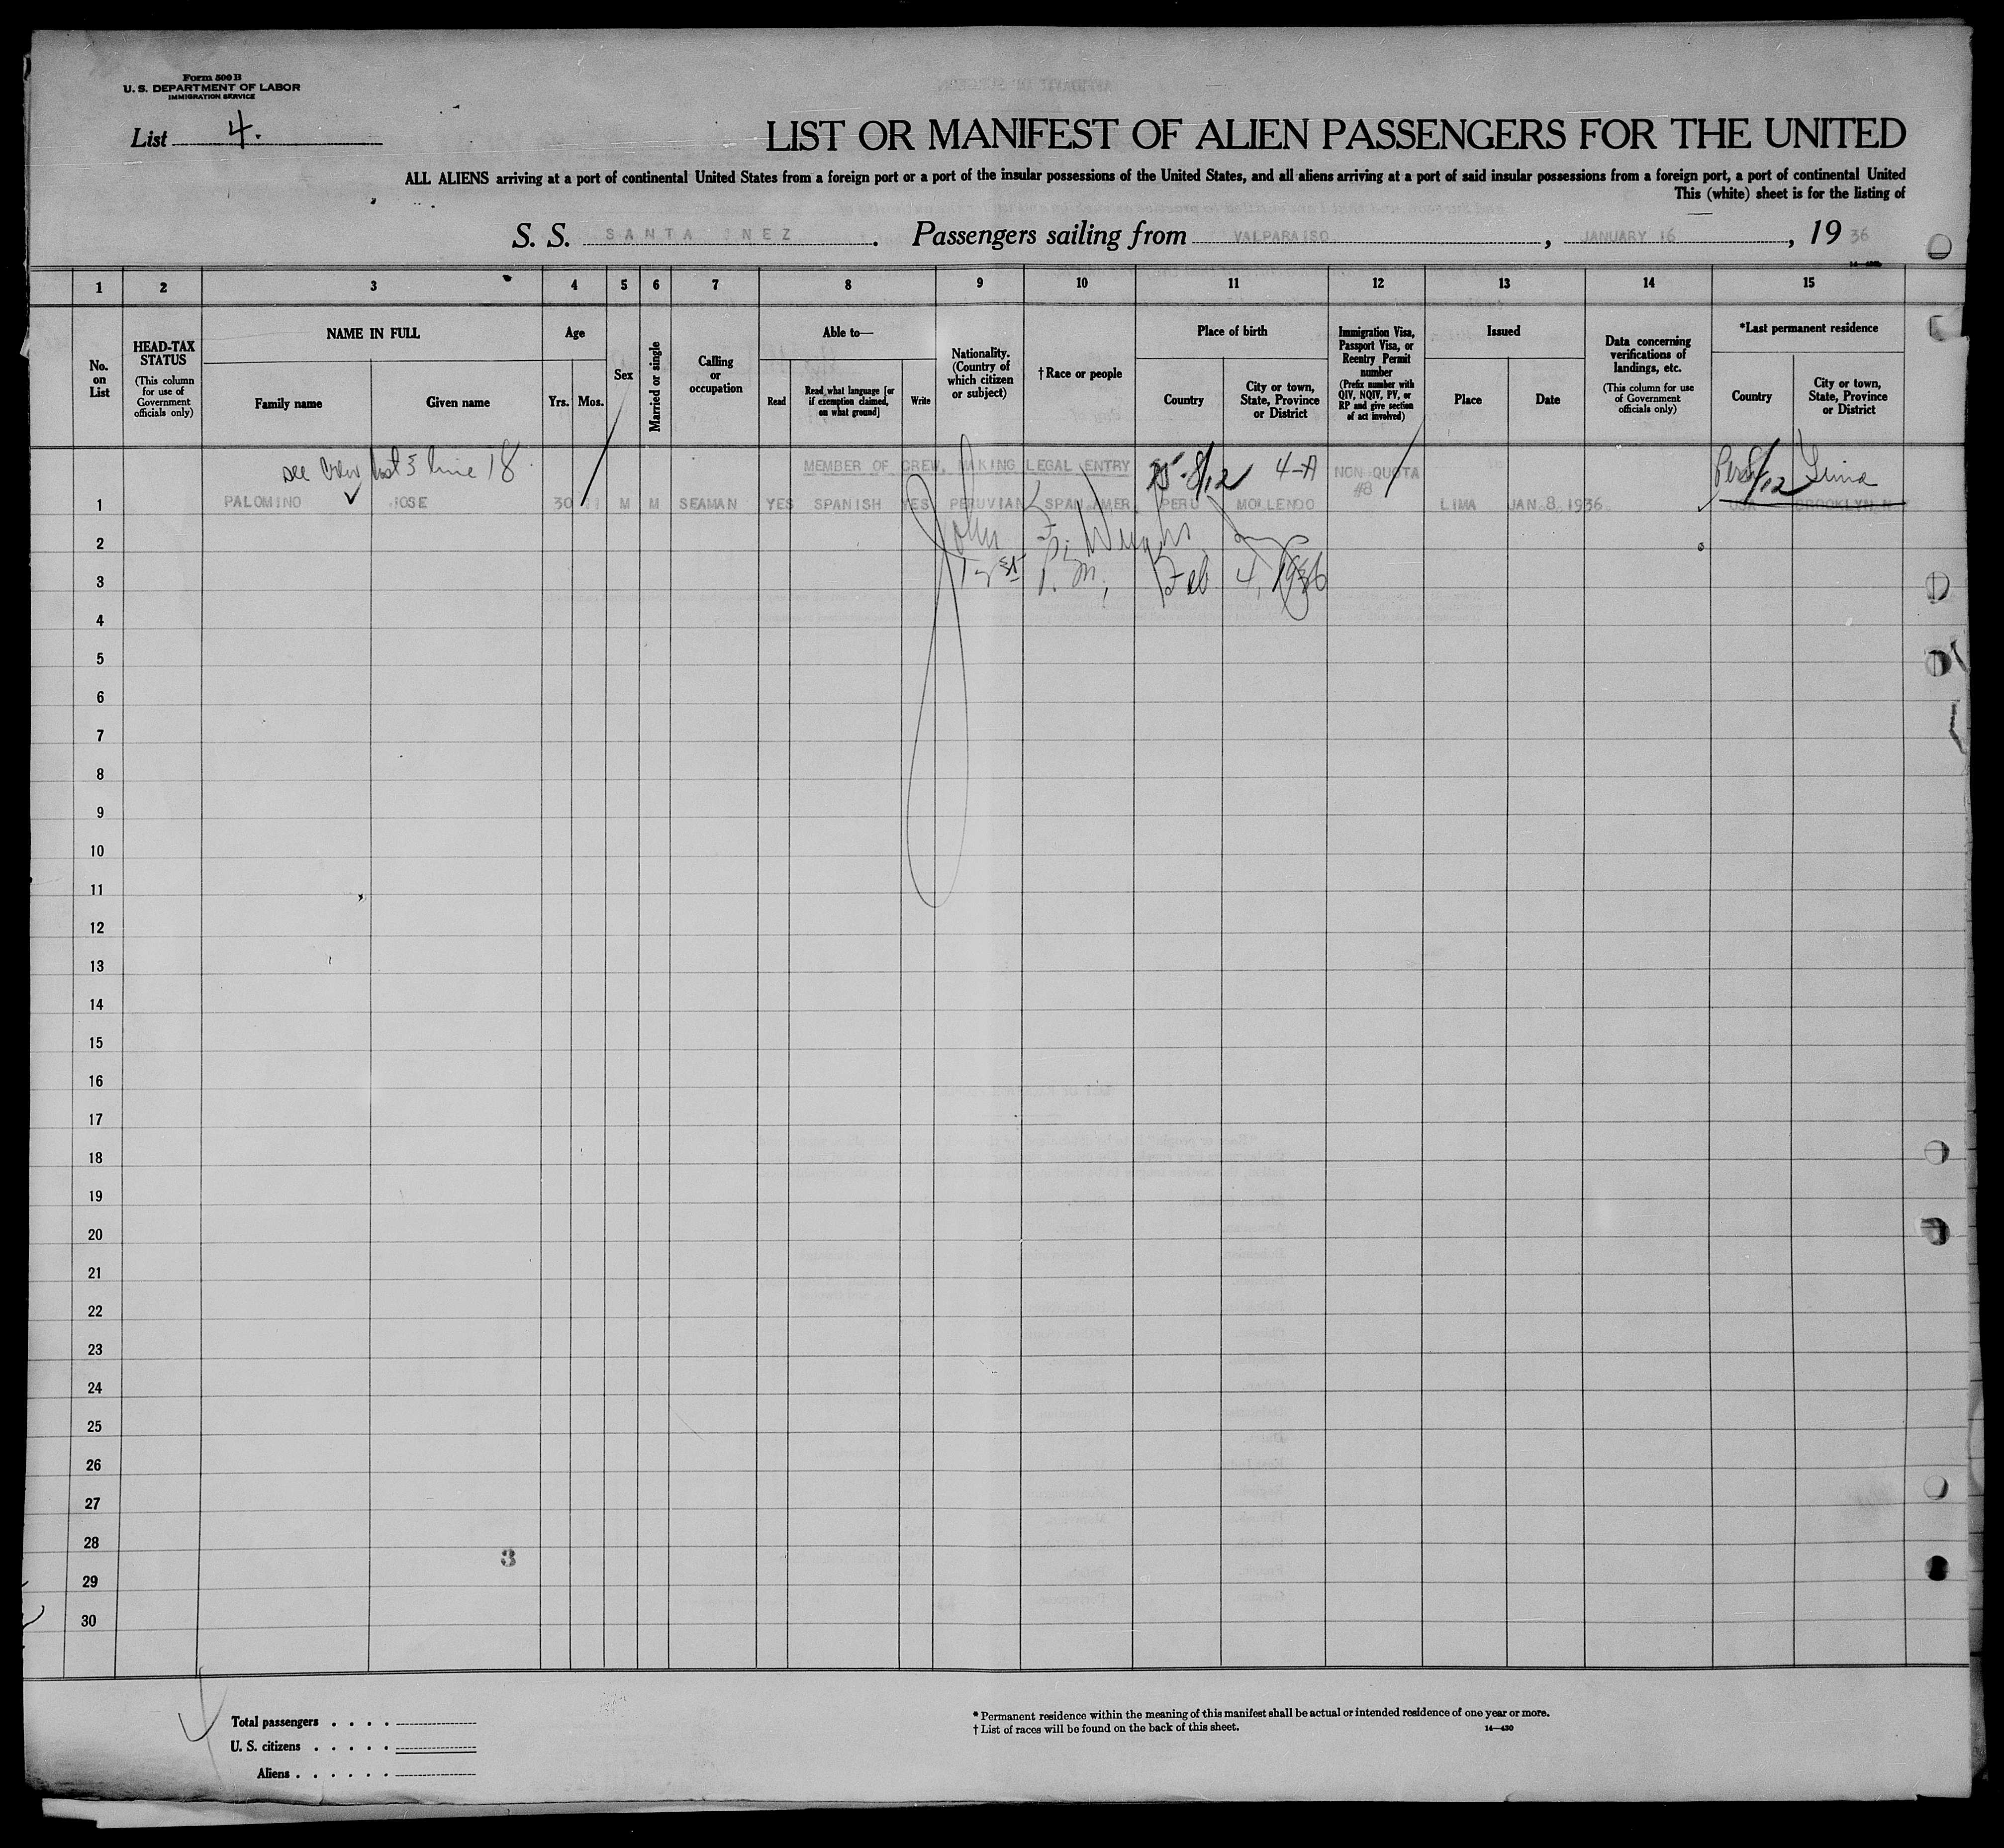 Form 500 B
U. S. DEPARTMENT OF LABOR
IMMIGRATION SERVICE
List 4.
LIST OR MANIFEST OF ALIEN PASSENGERS FOR THE UNITED
ALL ALIENS arriving at a port of continental United States from a foreign port or a port of the insular possessions of the United States, and all aliens arriving at a port of said insular possessions from a foreign port, a port of continental United
This (white) sheet is for the listing of
S. S. SANTA INEZ. Passengers sailing from VALPARAISO, JANUARY 16, 1936
1 2 3 4 5 6 7 8 9 10 11 12 13 14 15
No. on List
HEAD-TAX STATUS
(This column for use of Government officials only)
NAME IN FULL
Family name
Given name
Age
Yrs. Mos.
Sex
Married or single
Calling or occupation
Able to—
Read
Read what language [or if exemption claimed, on what ground]
Write
Nationality. (Country of which citizen or subject)
† Race or people
Place of birth
Country
City or town, State, Province or District
Immigration Visa, Passport Visa, or Reentry Permit number
(Prefix number with QIV, NQIV, PV, or RP and give section of act involved)
Issued
Place
Date
Data concerning verifications of landings, etc.
(This column for use of Government officials only)
*Last permanent residence
Country
City or town, State, Province or District
see Crew list 3 line 18
MEMBER OF CREW, MAKING LEGAL ENTRY
4-A
NON-QUOTA
#8
Peru Lima
1 PALOMINO JOSE 30 M M SEAMAN YES SPANISH YES PERUVIAN SPAN.AMER. PERU MOLLENDO LIMA JAN.8,1936. USA BROOKLYN N Y
2
John
3
Feb 4, 1936
4
5
6
7
8
9
10
11
12
13
14
15
16
17
18
19
20
21
22
23
24
25
26
27
28
3
29
30
Total passengers
U. S. citizens
Aliens
* Permanent residence within the meaning of this manifest shall be actual or intended residence of one year or more.
† List of races will be found on the back of this sheet.
14—430